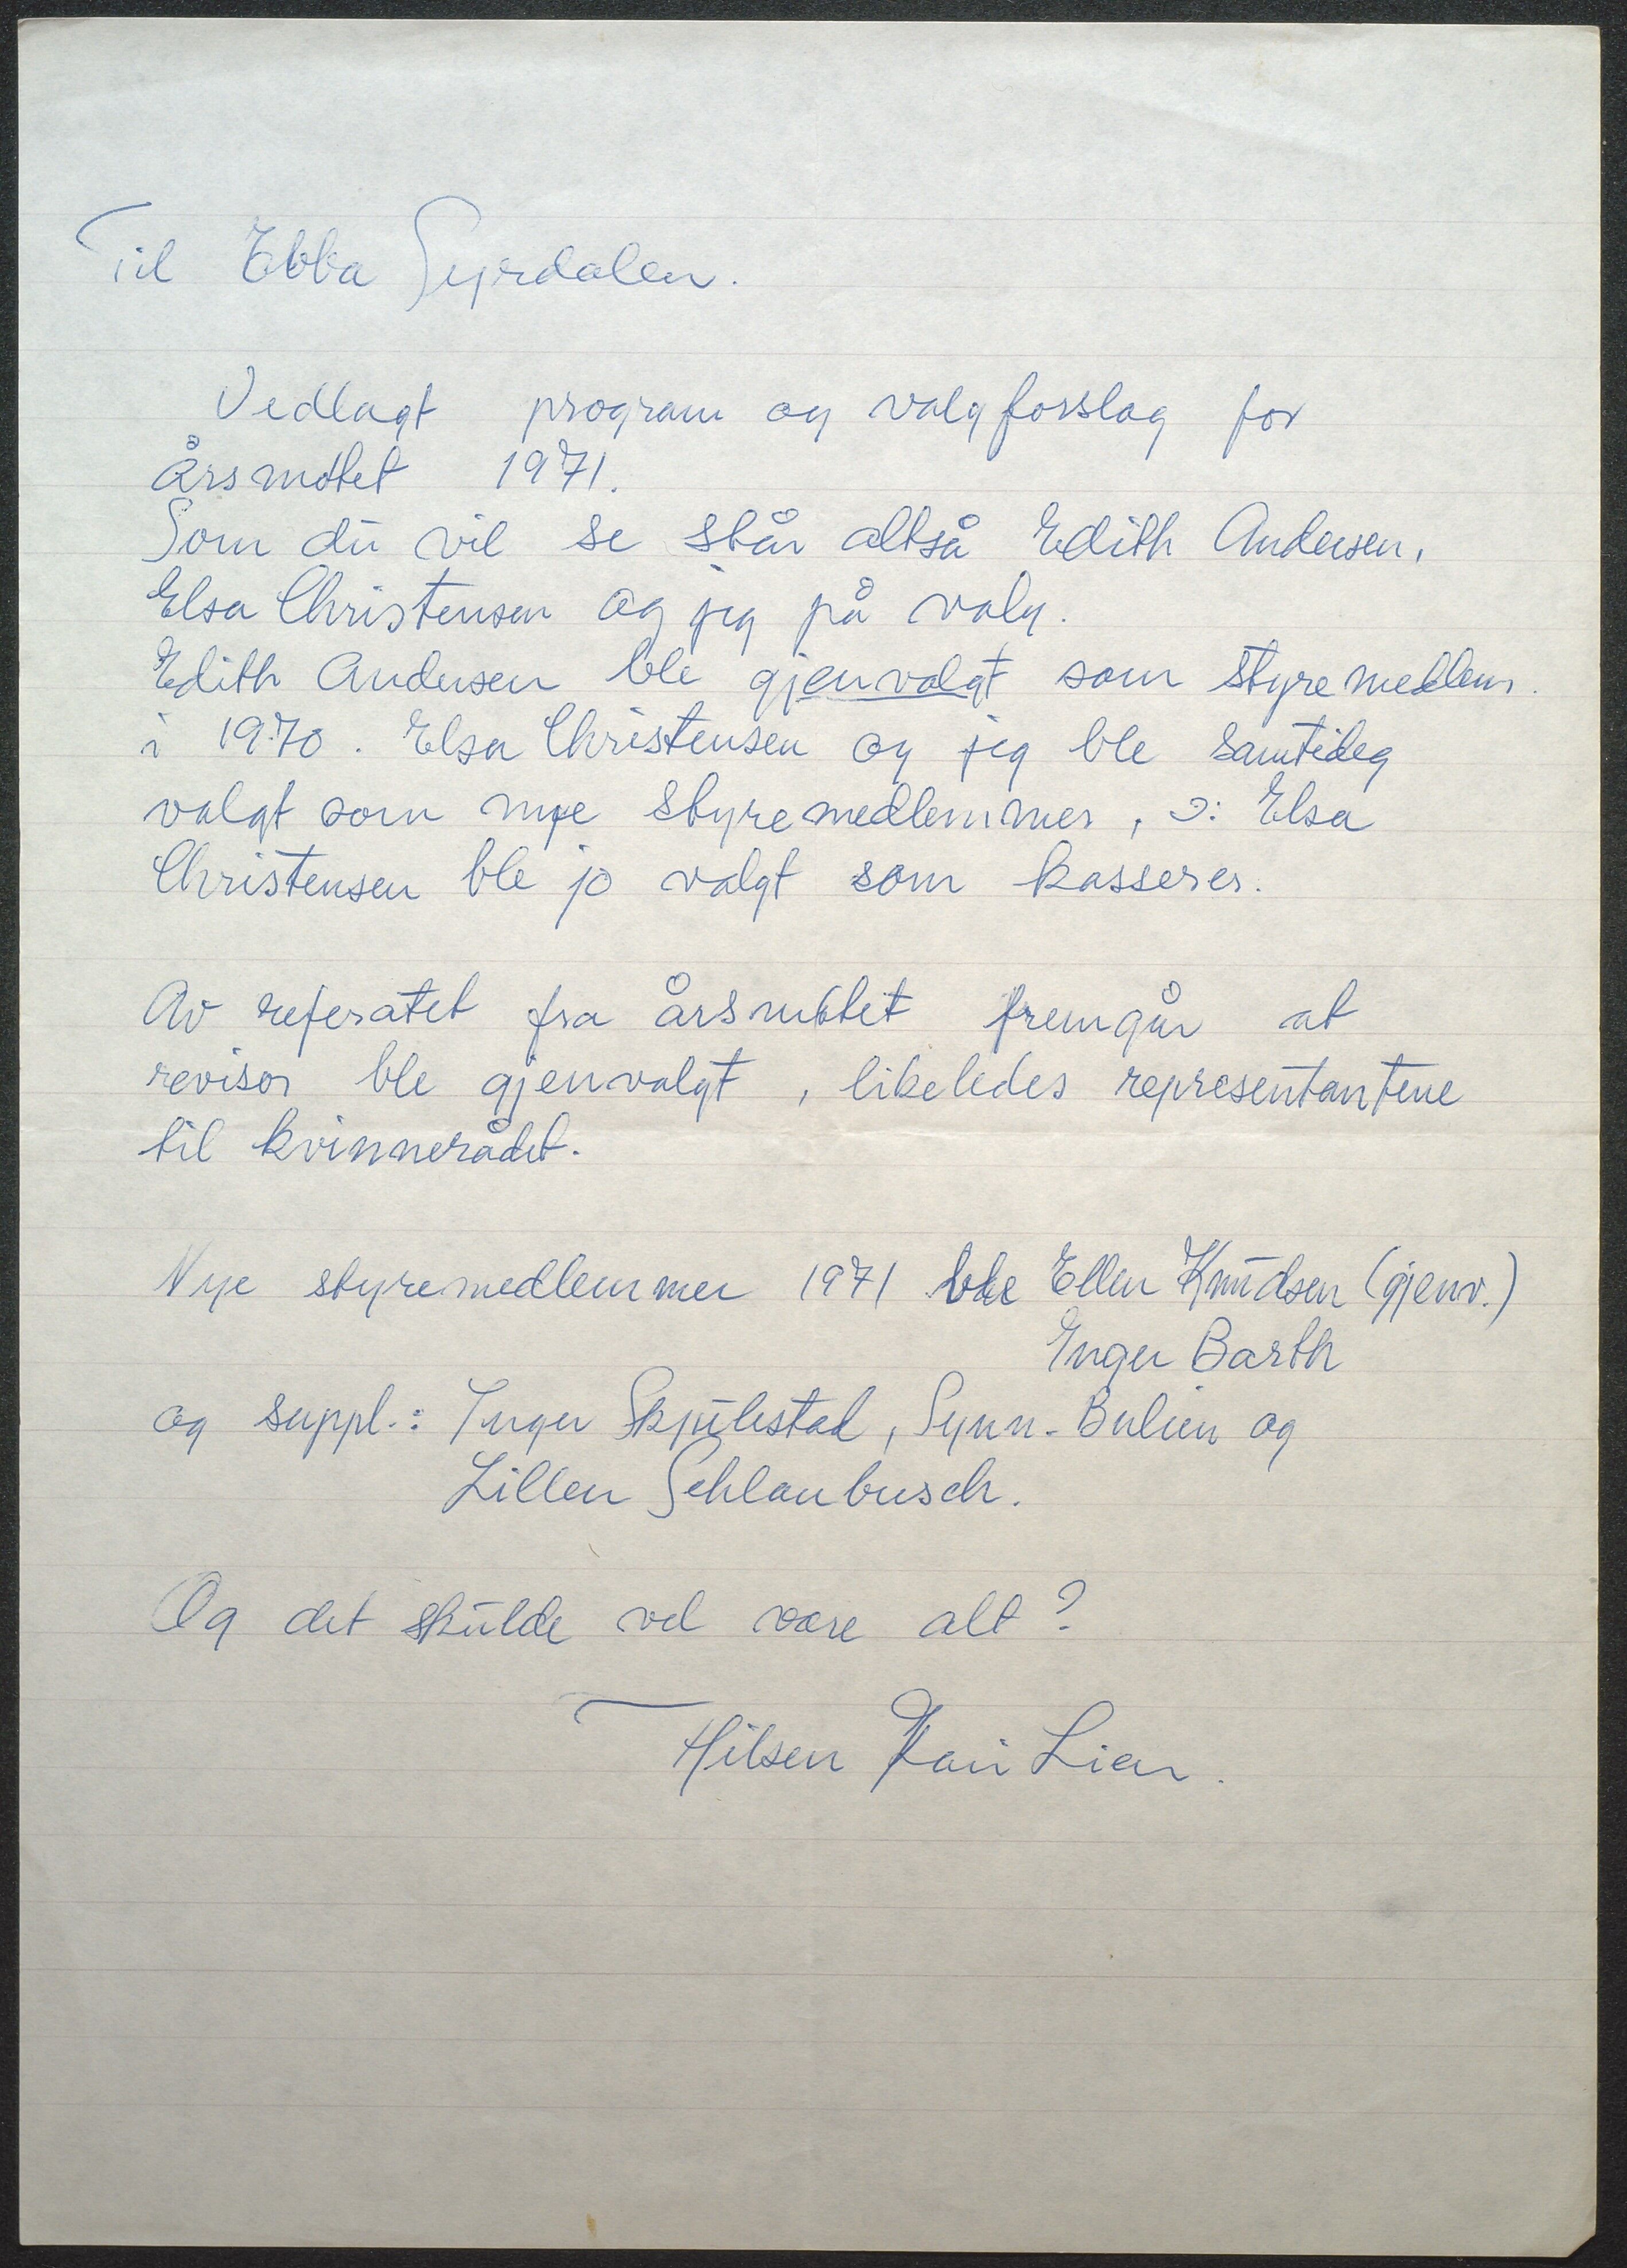 Til Ebba Syrdalen.
Vedlagt program og valgforslag for
årsmøtet 1971.
Som du vil se står altså Edith Andersen,
Elsa Christensen og jeg på valg.
Edith Andersen ble gjenvalgt som styremedlem
i 1970. Elsa Christensen og jeg ble samtidig
valgt som nye styremedlemmer, ɔ: Elsa
Christensen ble jo valgt som kasserer.
Av referatet fra årsmøtet fremgår at
revisor ble gjenvalgt, likeledes representantene
til kvinnerådet.
Nye styremedlemmer 1971 ble Ellen Knudsen (gjenv.)
Inger Barth
og suppl.: Inger Skjulestad, Synn. Bulien og
Lillen Schlanbusch.
Og det skulde vel være alt?
Hilsen Kari Lien.